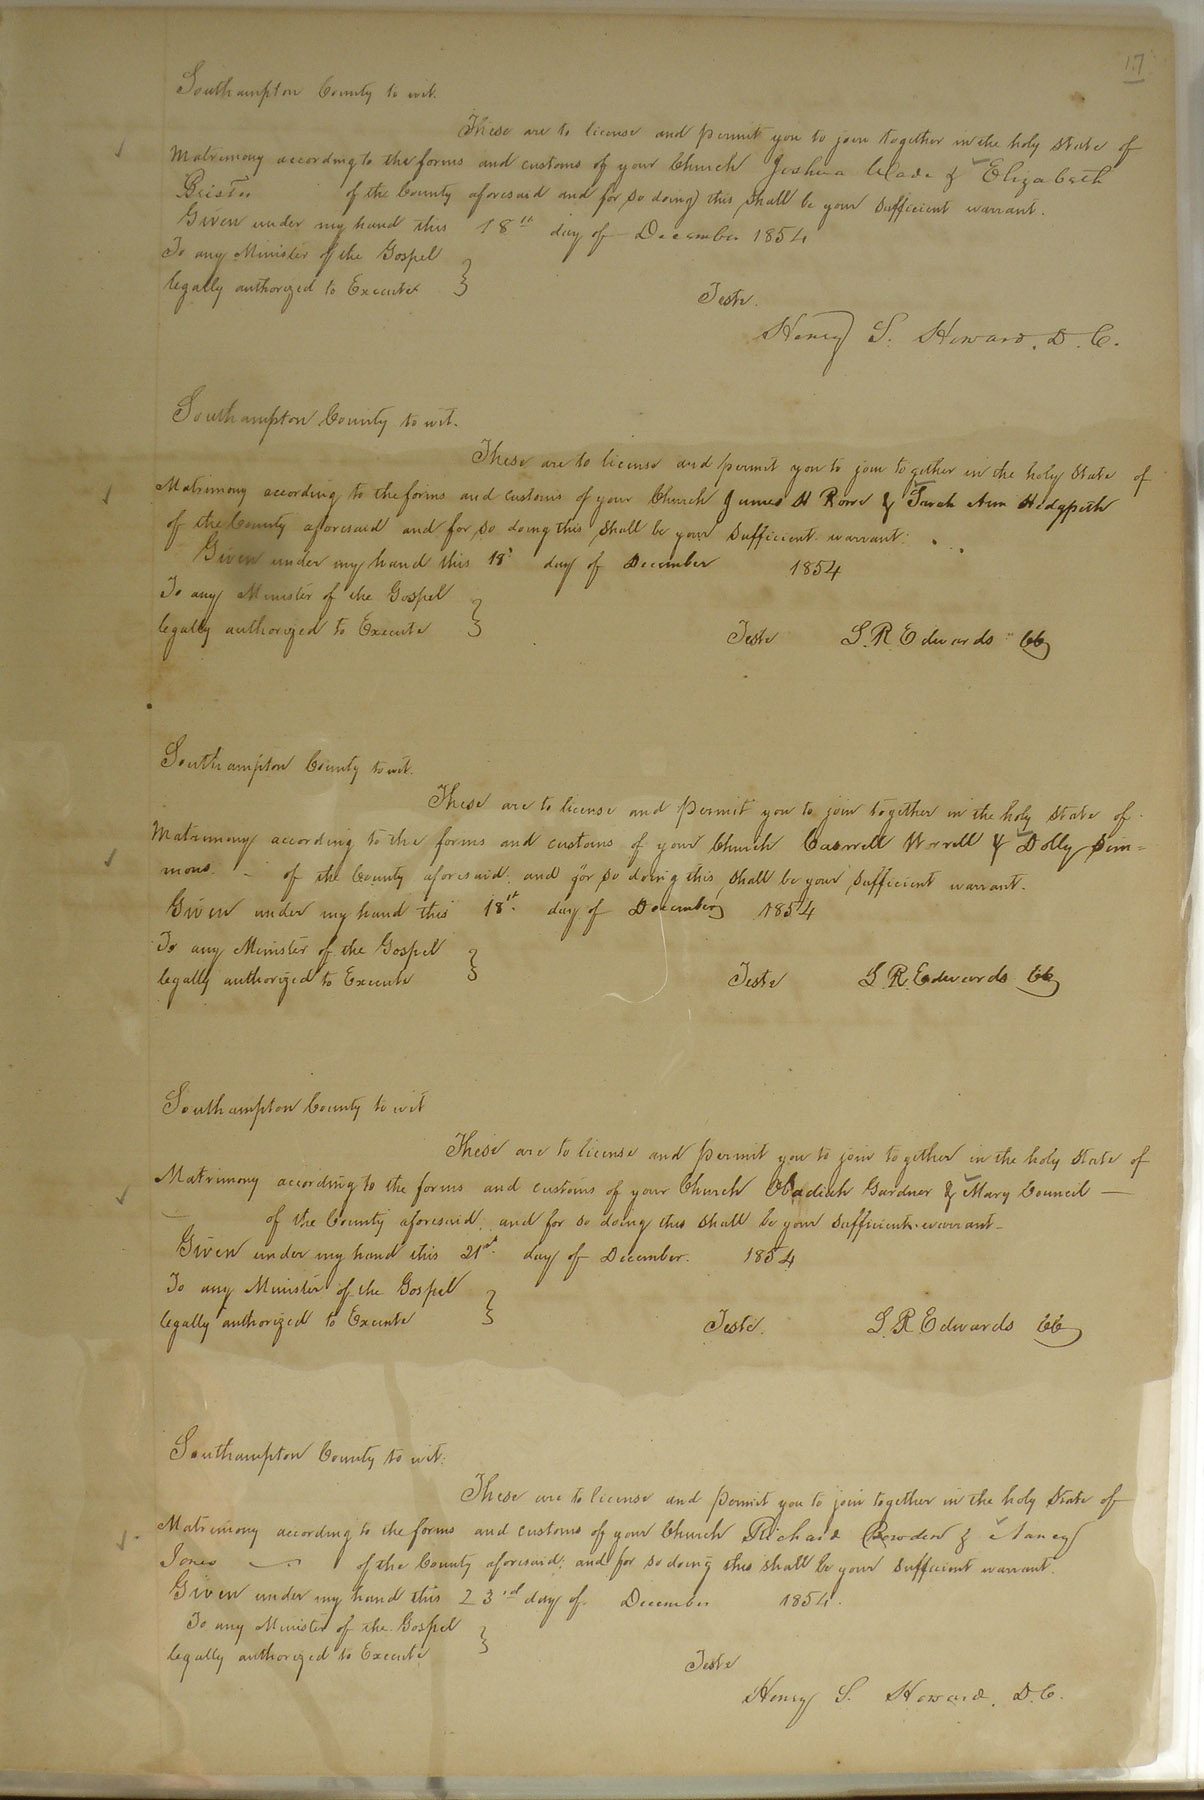 17
Southampton County to wit.
These are to license and permit you to join together in the holy state of
Matrimony according to the forms and customs of your Church Joshua Wade & Elizabeth
Briston of the County aforesaid and for so doing this shall be your sufficient warrant.
Given under my hand this 18th day of December 1854
To any Minister of the Gospel
legally authorized to Execute }
Teste.
Henry S. Howard, D. C.
Southampton County to wit.
These are to license and permit you to join together in the holy state of
Matrimony according to the forms and customs of your Church James H Rose & Sarah Ann Hedgpeth
of the County aforesaid and for so doing this shall be your sufficient warrant.
Given under my hand this 18th day of December 1854
To any Minister of the Gospel
legally authorized to Execute }
Teste L. R. Edwards CC
Southampton County to wit.
These are to license and permit you to join together in the holy state of
Matrimony according to the forms and customs of your Church Worrell & Dolly Sim=
mons. of the County aforesaid, and for so doing this shall be your sufficient warrant.
Given under my hand this 18th day of December 1854
To any Minister of the Gospel
legally authorized to Execute }
Teste L. R. Edwards CC
Southampton County to wit
These are to license and permit you to join together in the holy state of
Matrimony according to the forms and customs of your Church Obadiah Gardner & Mary Council —
— of the County aforesaid, and for so doing this shall be your sufficient warrant.
Given under my hand this 21st day of December. 1854
To any Minister of the Gospel
legally authorized to Execute }
Teste. L. R. Edwards CC
Southampton County to wit.
These are to license and permit you to join together in the holy state of
Matrimony according to the forms and customs of your Church Richard Bowden & Nancy
Jones — of the County aforesaid; and for so doing this shall be your sufficient warrant.
Given under my hand this 23rd day of December 1854.
To any Minister of the Gospel
legally authorized to Execute }
Teste
Henry S. Howard, D. C.